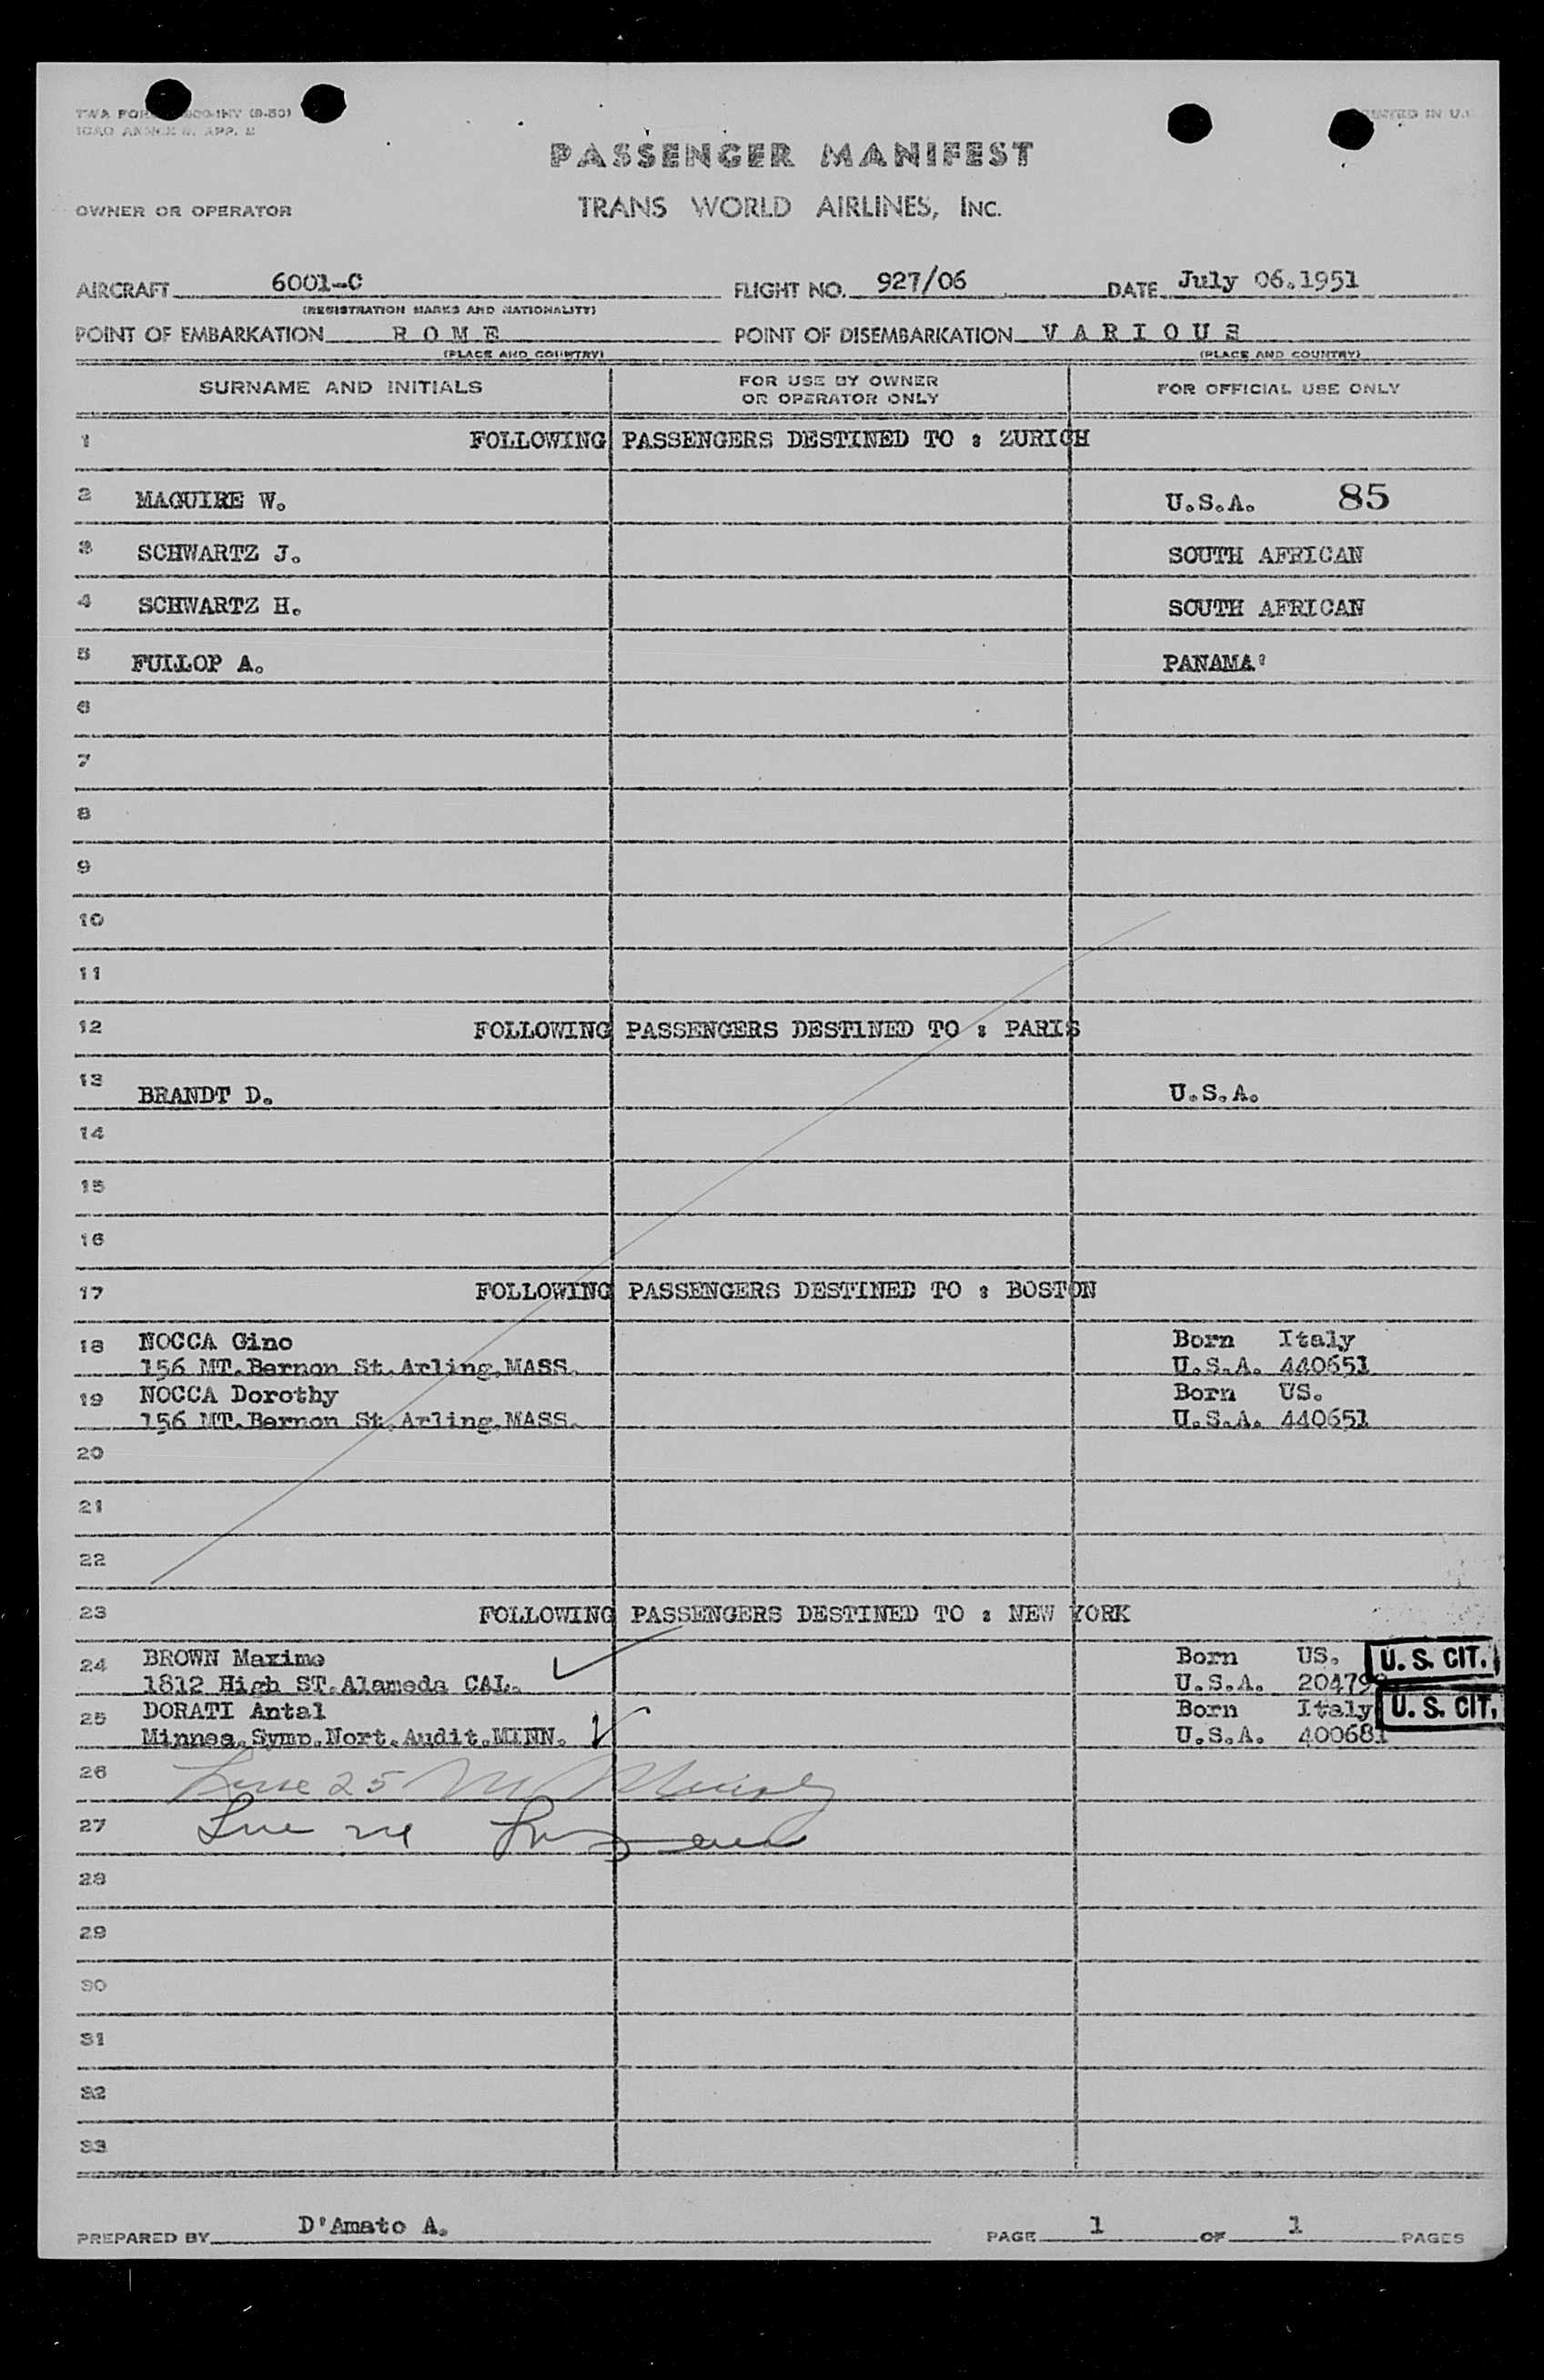 TWA FOR
ICAO ANNEX 9, APP. E
PASSENGER MANIFEST
OWNER OR OPERATOR TRANS WORLD AIRLINES, INC.
AIRCRAFT 6001-C FLIGHT NO. 927/06 DATE July 06.1951
(REGISTRATION MARKS AND NATIONALITY)
POINT OF EMBARKATION R O M E POINT OF DISEMBARKATION V A R I O U S
(PLACE AND COUNTRY) (PLACE AND COUNTRY)
SURNAME AND INITIALS FOR USE BY OWNER OR OPERATOR ONLY FOR OFFICIAL USE ONLY
1 FOLLOWING PASSENGERS DESTINED TO : ZURICH
2 MAGUIRE W. U.S.A. 85
3 SCHWARTZ J. SOUTH AFRICAN
4 SCHWARTZ H. SOUTH AFRICAN
5 FULLOP A. PANAMA
6
7
8
9
10
11
12 FOLLOWING PASSENGERS DESTINED TO : PARIS
13 BRANDT D. U.S.A.
14
15
16
17 FOLLOWING PASSENGERS DESTINED TO : BOSTON
18 NOCCA Gino Born Italy
156 MT.Bernon St.Arling.MASS. U.S.A. 440651
19 NOCCA Dorothy Born US.
156 MT.Bernon St.Arling.MASS. U.S.A. 440651
20
21
22
23 FOLLOWING PASSENGERS DESTINED TO : NEW YORK
24 BROWN Maximo Born US. U. S. CIT.
1812 High ST.Alameda CAL. U.S.A.
25 DORATI Antal Born Italy U. S. CIT.
Minnea.Symp.Nort.Audit.MINN. U.S.A. 400681
26 Line 25
27 Line
28
29
30
31
32
33
PREPARED BY D'Amato A. PAGE 1 OF 1 PAGES